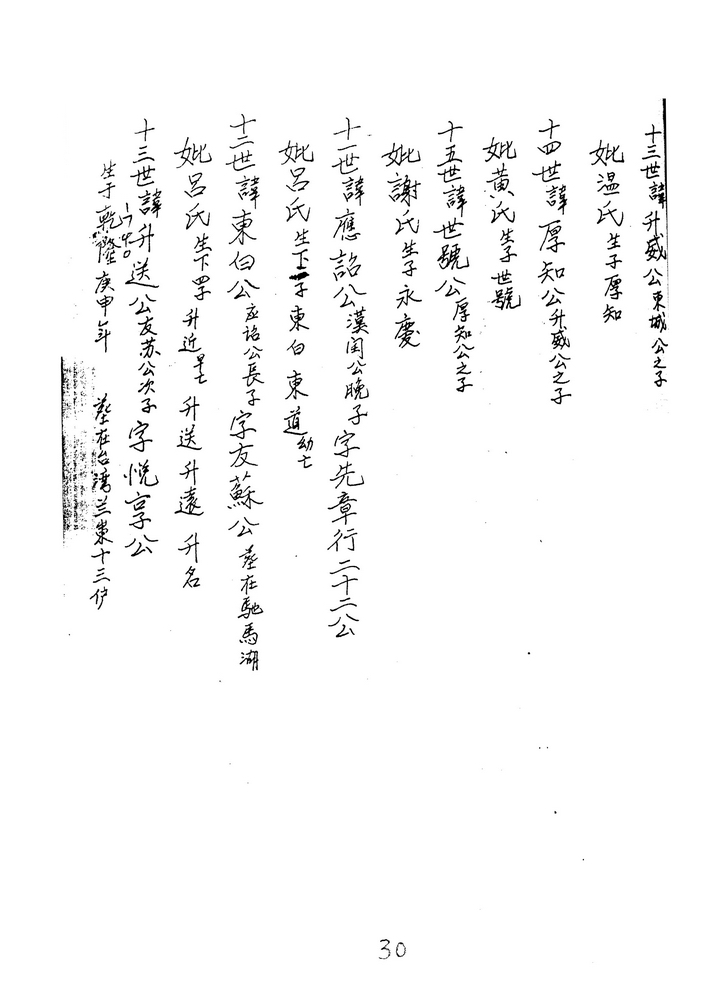 十三世諱升威公東城公之子
妣温氏生子厚知
十四世諱厚知公升威公之子
妣黄氏生子世號
十五世諱世號公厚知公之子
妣謝氏生子永慶
十一世諱應詔公漢闰公晚子字先章行二十二公
妣呂氏生下二子東白東道幼亡
十二世諱東白公应詔公長子字友蘇公墓在馳馬湖
妣呂氏生下四子升近早亡升送升遠升名
十三世諱升送公友苏公次子字悦享公
1740
生于乾隆庚申年 墓在台湾兰東十三份
30